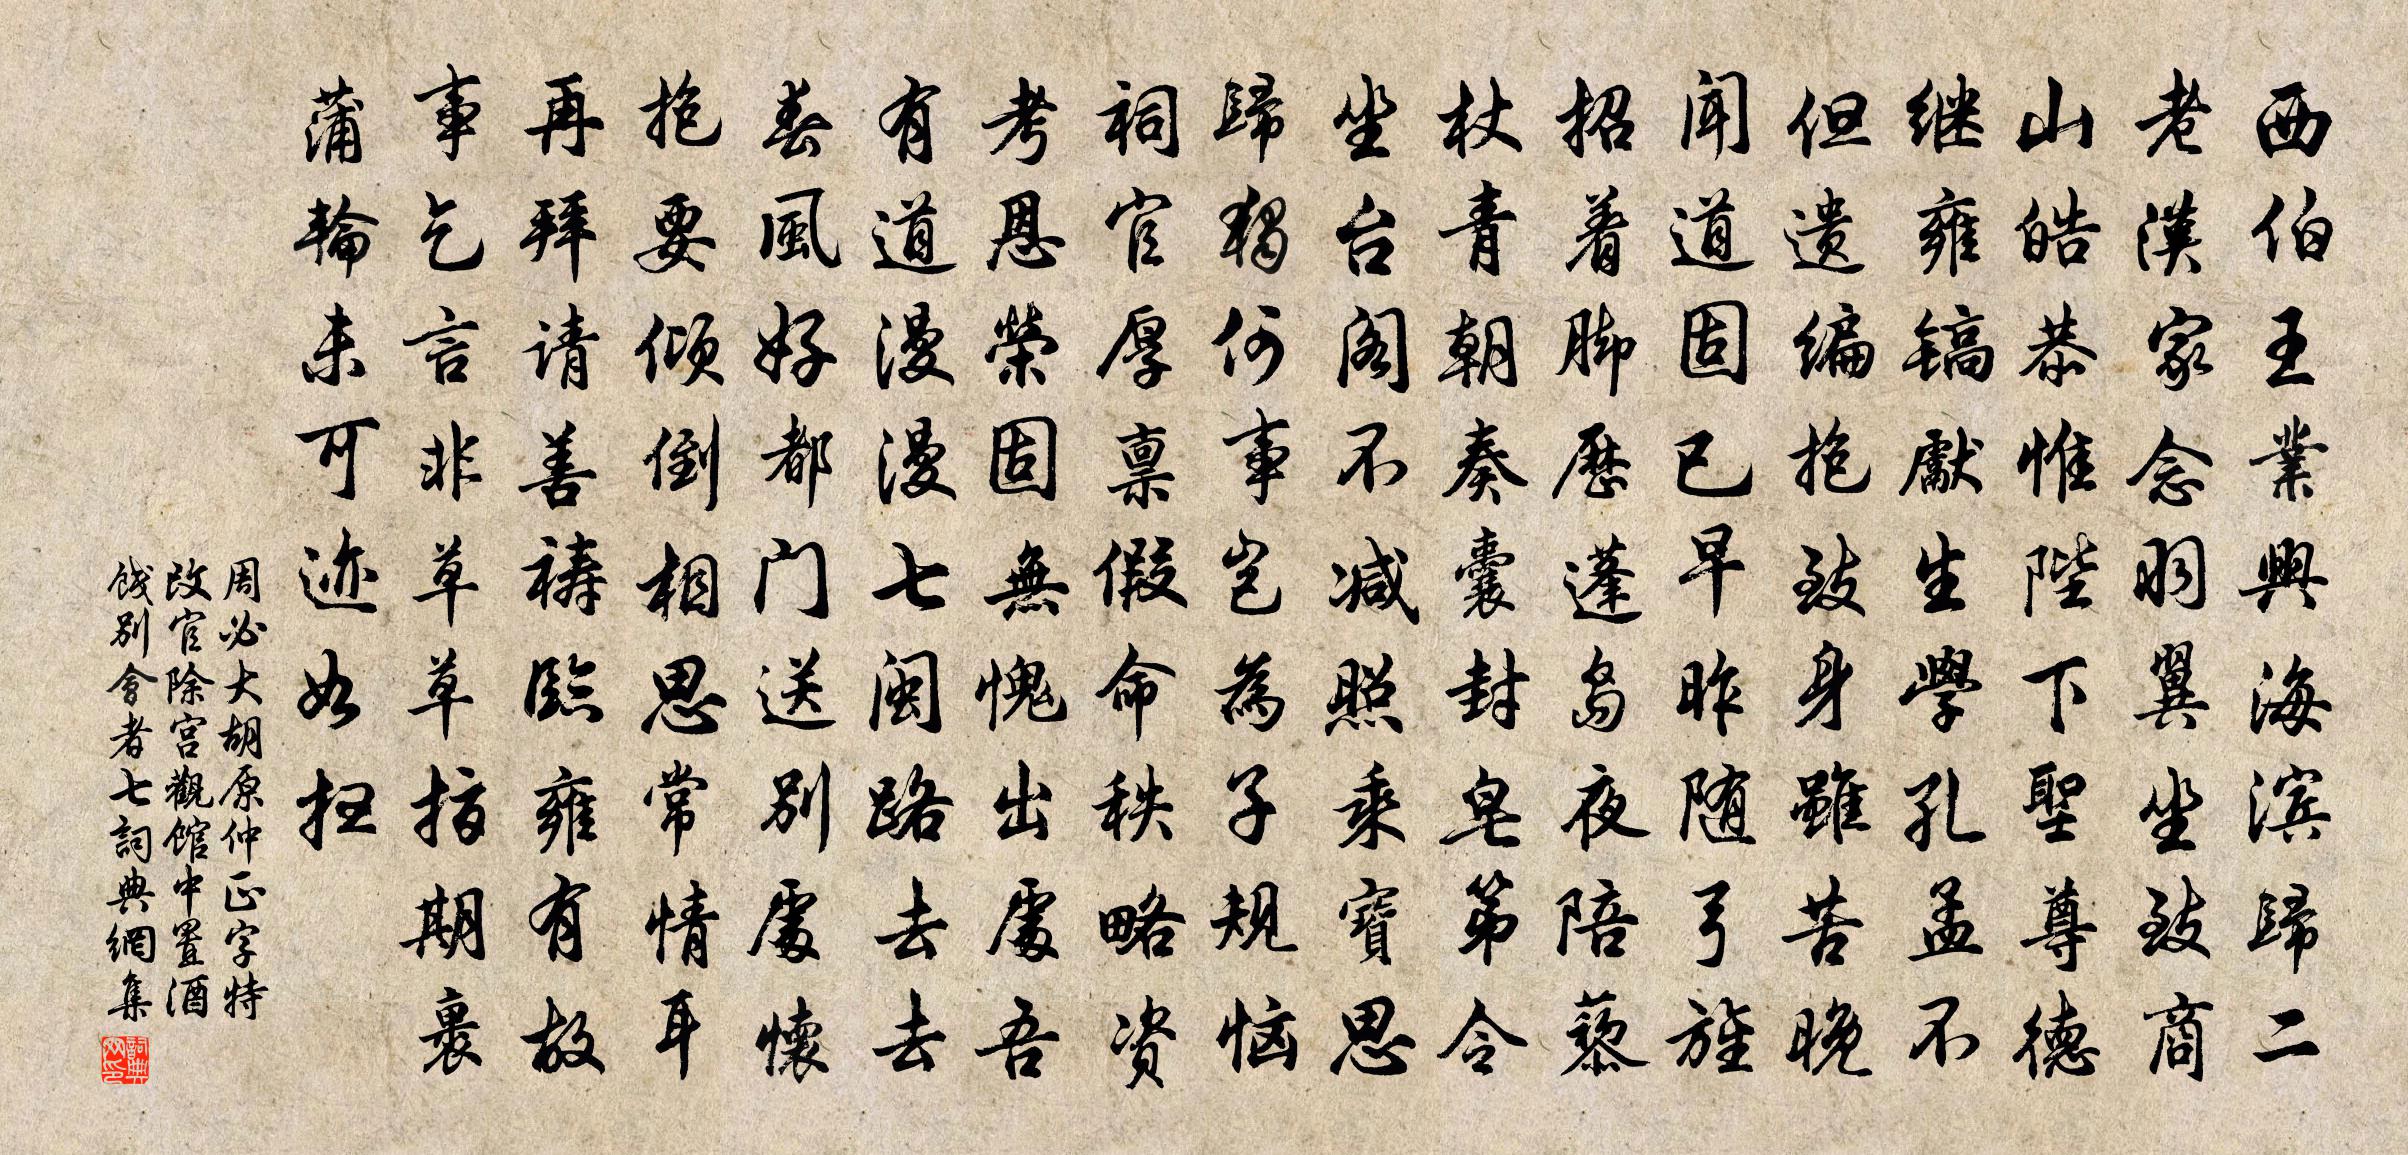 西伯王業興海滨歸二
老漢家念羽翼坐致商
山皓恭惟陛下聖尊德
继雍镐獻生學孔孟不
但遗编抱致身雖苦晚
闻道固已早昨随弓旌
招着脚歷蓬岛夜陪藜
杖青朝奏囊封皂第令
坐台阁不减照乘寶思
歸獨何事岂為子規恼
祠官厚禀假命秩略资
考恩榮固無愧出處吾
有道漫漫七闽路去去
春風好都门送别處懷
抱要倾倒相思常情耳
再拜请善祷臨雍有故
事乞言非草草指期裹
蒲輪未可迹如扫
周必大胡原仲正字特
改官除宫觀馆中置酒
饯别會者七詞典網集
詞典网印